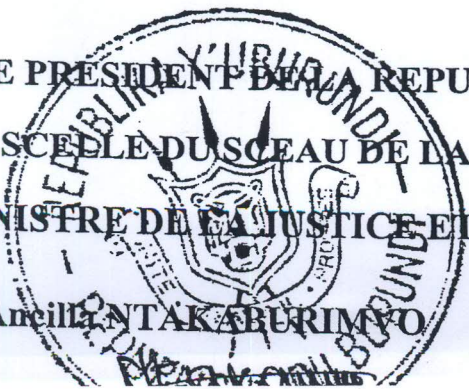 E PRESIDENT DE LA REPU
SCELLE DU SCEAU DE LA
NISTRE DE LA JUSTICE ET
Ancilla NTAKABURIMVO
REPUBLIKA Y'UBURUNDI
BURUNDI